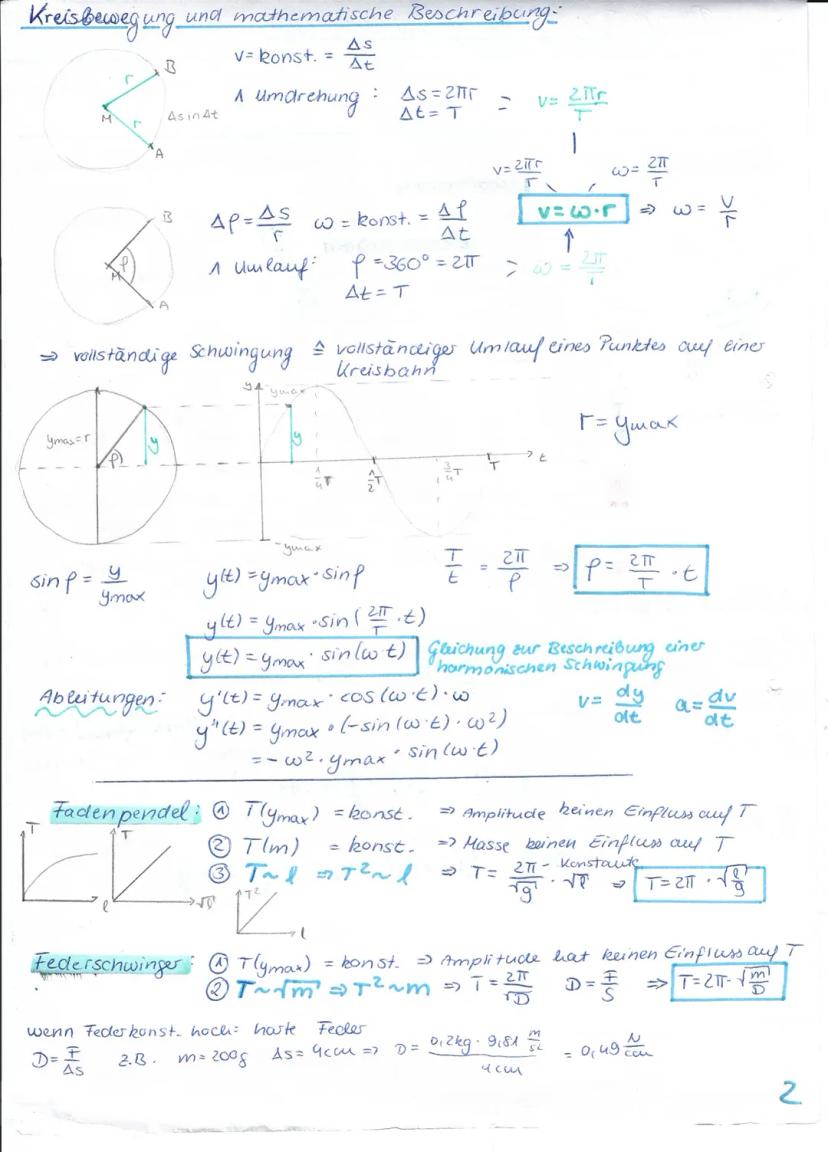 Kreisbewegung und mathematische Beschreibung:
B
r
M
r
A
Δs in Δt
v = konst. = Δs/Δt
1 Umdrehung : Δs = 2πr ⇒ v = 2πr/T
Δt = T
v = 2πr/T ω = 2π/T
B
φ
M
A
Δφ = Δs/r ω = konst. = Δφ/Δt v = ω·r ⇒ ω = v/r
1 Umlauf: φ = 360° = 2π ⇒ ω = 2π/T
Δt = T
⇒ vollständige Schwingung ≙ vollständiger Umlauf eines Punktes auf einer
Kreisbahn
ymax = r
φ
y
y
ymax
y
1/4 T 1/2 T 3/4 T T t
-ymax
r = ymax
sin φ = y/ymax y(t) = ymax · sin φ T/t = 2π/φ ⇒ φ = 2π/T · t
y(t) = ymax · sin (2π/T · t)
y(t) = ymax · sin (ω t) Gleichung zur Beschreibung einer
harmonischen Schwingung
Ableitungen: y'(t) = ymax · cos (ω·t) · ω v = dy/dt a = dv/dt
y''(t) = ymax · (-sin (ω·t) · ω²)
= -ω² · ymax · sin (ω·t)
Fadenpendel: ① T(ymax) = konst. ⇒ Amplitude keinen Einfluss auf T
② T(m) = konst. ⇒ Masse keinen Einfluss auf T
③ T ~ l ⇒ T² ~ l ⇒ T = 2π/√g · √l - Konstante ⇒ T = 2π · √(l/g)
T
l
T
√l
T²
l
Federschwinger: ① T(ymax) = konst. ⇒ Amplitude hat keinen Einfluss auf T
② T ~ √m ⇒ T² ~ m ⇒ T = 2π/√D D = F/s ⇒ T = 2π · √(m/D)
wenn Federkonst. hoch = harte Feder
D = F/Δs z.B. m = 200g Δs = 4cm ⇒ D = 0,2kg · 9,81 m/s² / 4cm = 0,49 N/cm
2